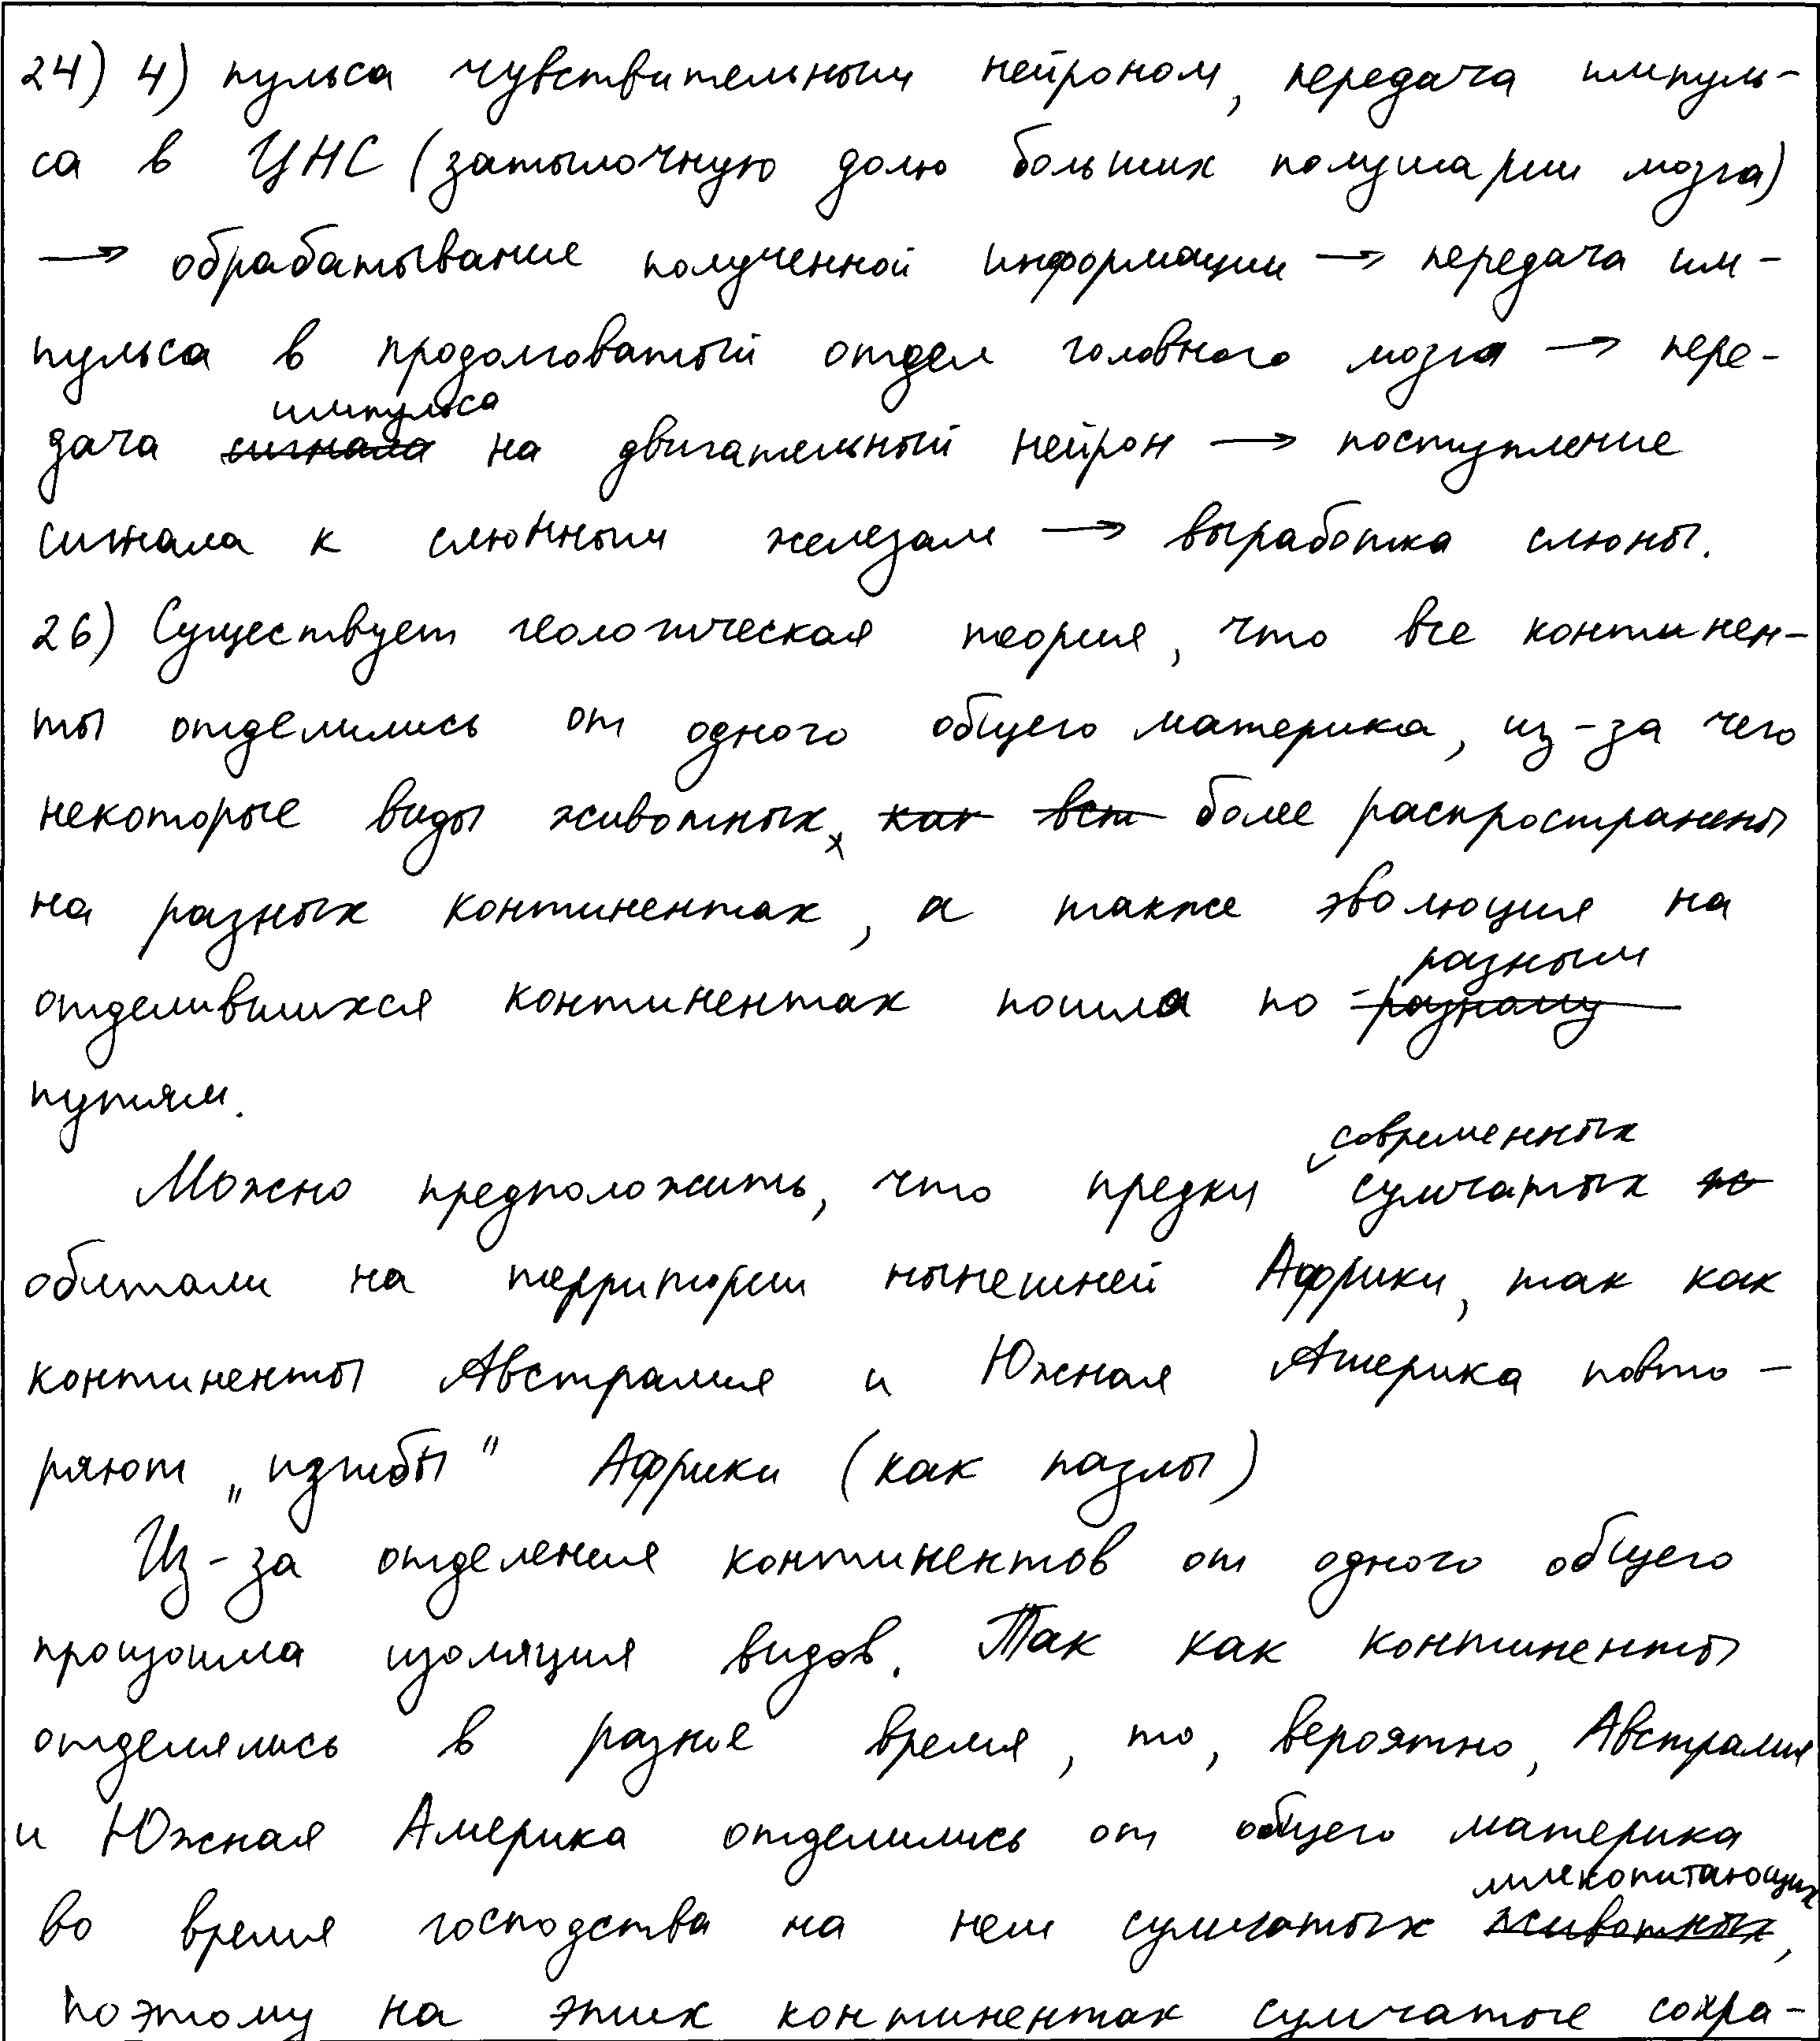 24) 4) пульса чувствительным нейроном, передача импуль-
са в ЦНС (затылочную долю больших полушарий мозга)
→ обрабатывание полученной информации → передача им-
пульса в продолговатый отдел головного мозга → пере-
импульса
дача сигнала на двигательный нейрон → поступление
сигнала к слюнным железам → выработка слюны.
26) Существует геологическая теория, что все континен-
ты отделились от одного общего материка, из-за чего
некоторые виды животных, как вст более распространены
на разных континентах, а также эволюция на
разным
отделившихся континентах пошла по разному
путям.
современных
Можно предположить, что предки сумчатых
обитали на территории нынешней Африки, так как
континенты Австралия и Южная Америка повто-
ряют „изгибы" Африки (как пазлы)
Из-за отделения континентов от одного общего
произошла изоляция видов. Так как континенты
отделялись в разное время, то, вероятно, Австралия
и Южная Америка отделились от общего материка
млекопитающих
во время господства на нем сумчатых животных,
поэтому на этих континентах сумчатые сохра-